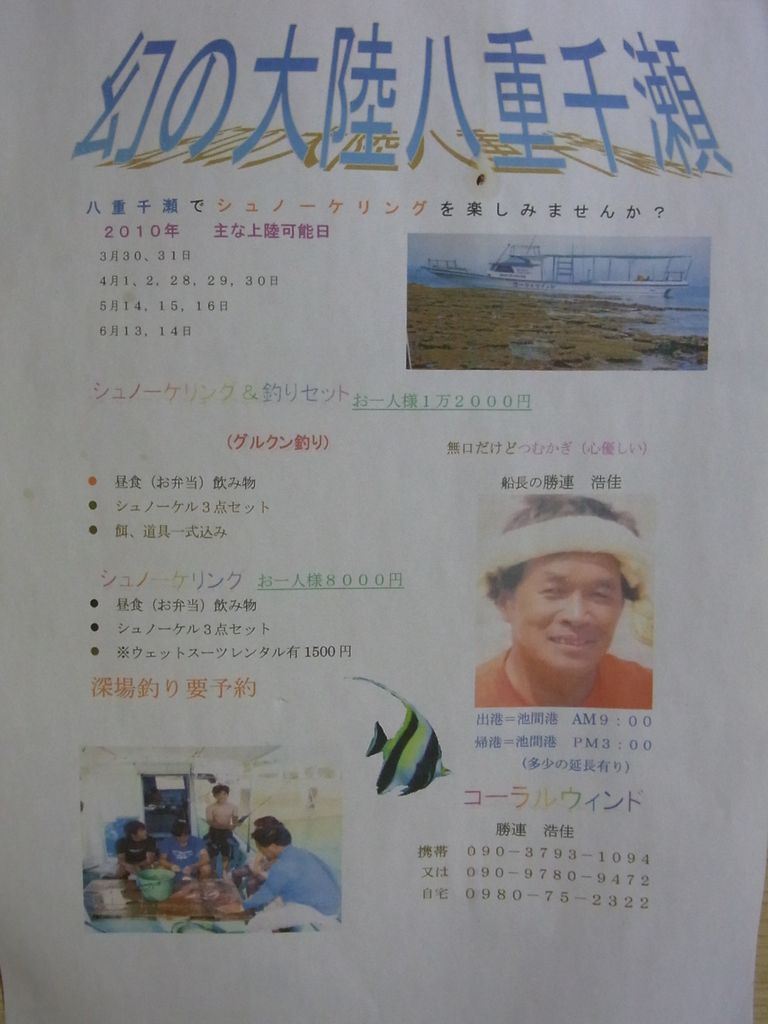 幻の大陸八重干瀬
八重干瀬でシュノーケリングを楽しみませんか？
2010年　主な上陸可能日
3月30、31日
4月1、2，28，29，30日
5月14，15，16日
6月13，14日
シュノーケリング＆釣りセット お一人様1万2000円
(グルクン釣り)
無口だけどつむかぎ（心優しい）
船長の勝連　浩佳
昼食（お弁当）飲み物
シュノーケル3点セット
餌、道具一式込み
シュノーケリング お一人様8000円
昼食（お弁当）飲み物
シュノーケル3点セット
※ウェットスーツレンタル有 1500円
深場釣り要予約
出港＝池間港　AM9：00
帰港＝池間港　PM3：00
（多少の延長有り）
コーラルウィンド
勝連　浩佳
携帯　090－3793－1094
又は　090－9780－9472
自宅　0980－75－2322